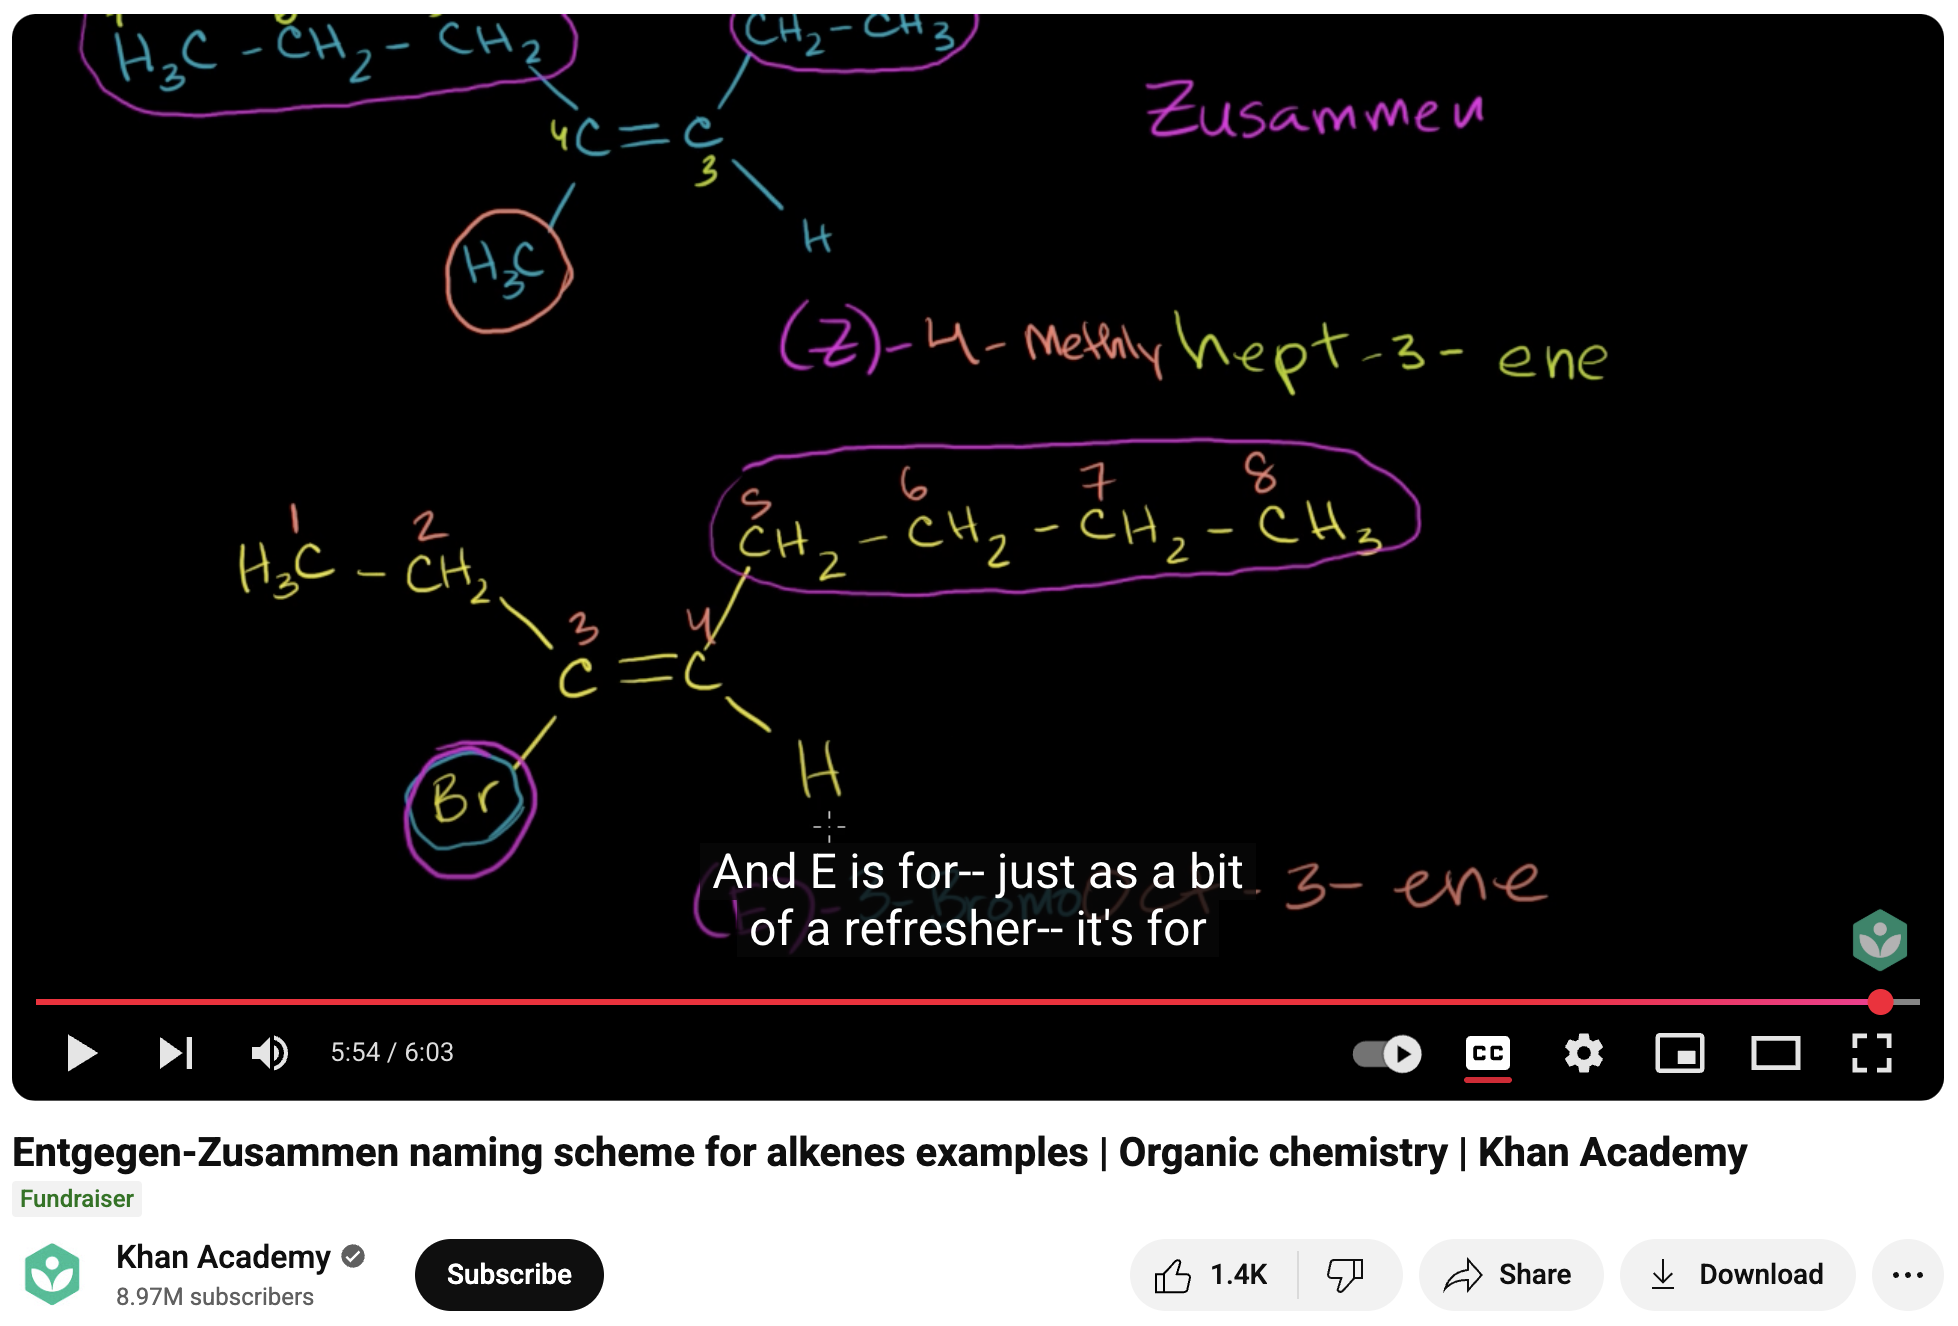 7 6 5
H₃C - CH₂ - CH₂ CH₂ - CH₃
Zusammen
4 C = C
3
H₃C H
(Z) - 4 - Methly hept - 3 - ene
5 6 7 8
1 2 CH₂ - CH₂ - CH₂ - CH₃
H₃C - CH₂
3 4
C = C
Br H
And E is for-- just as a bit
of a refresher-- it's for
(E) - 3 - Bromo Oct - 3 - ene
5:54 / 6:03
CC
Entgegen-Zusammen naming scheme for alkenes examples | Organic chemistry | Khan Academy
Fundraiser
Khan Academy
8.97M subscribers
Subscribe
1.4K
Share
Download